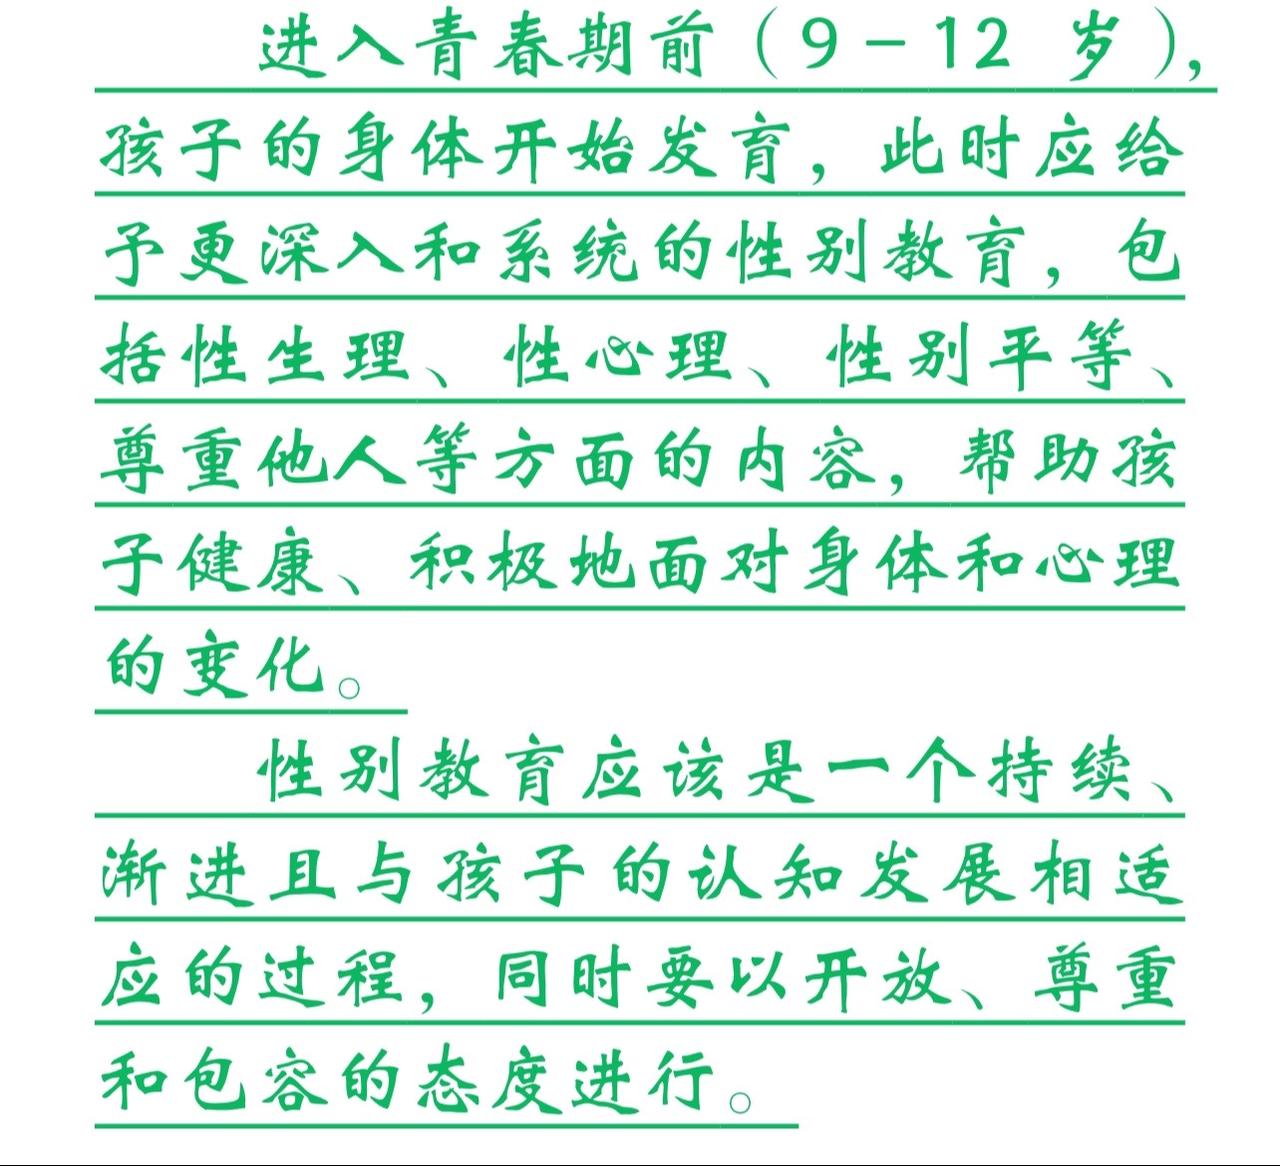 进入青春期前（9－12 岁），
孩子的身体开始发育，此时应给
予更深入和系统的性别教育，包
括性生理、性心理、性别平等、
尊重他人等方面的内容，帮助孩
子健康、积极地面对身体和心理
的变化。
性别教育应该是一个持续、
渐进且与孩子的认知发展相适
应的过程，同时要以开放、尊重
和包容的态度进行。